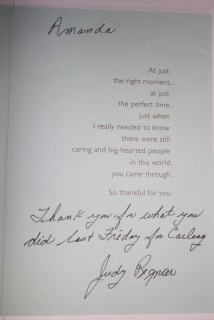 Amanda
At just
the right moment...
at just
the perfect time...
just when
I really needed to know
there were still
caring and big-hearted people
in this world,
you came through.
So thankful for you.
Thank you for what you
did last Friday for
Judy